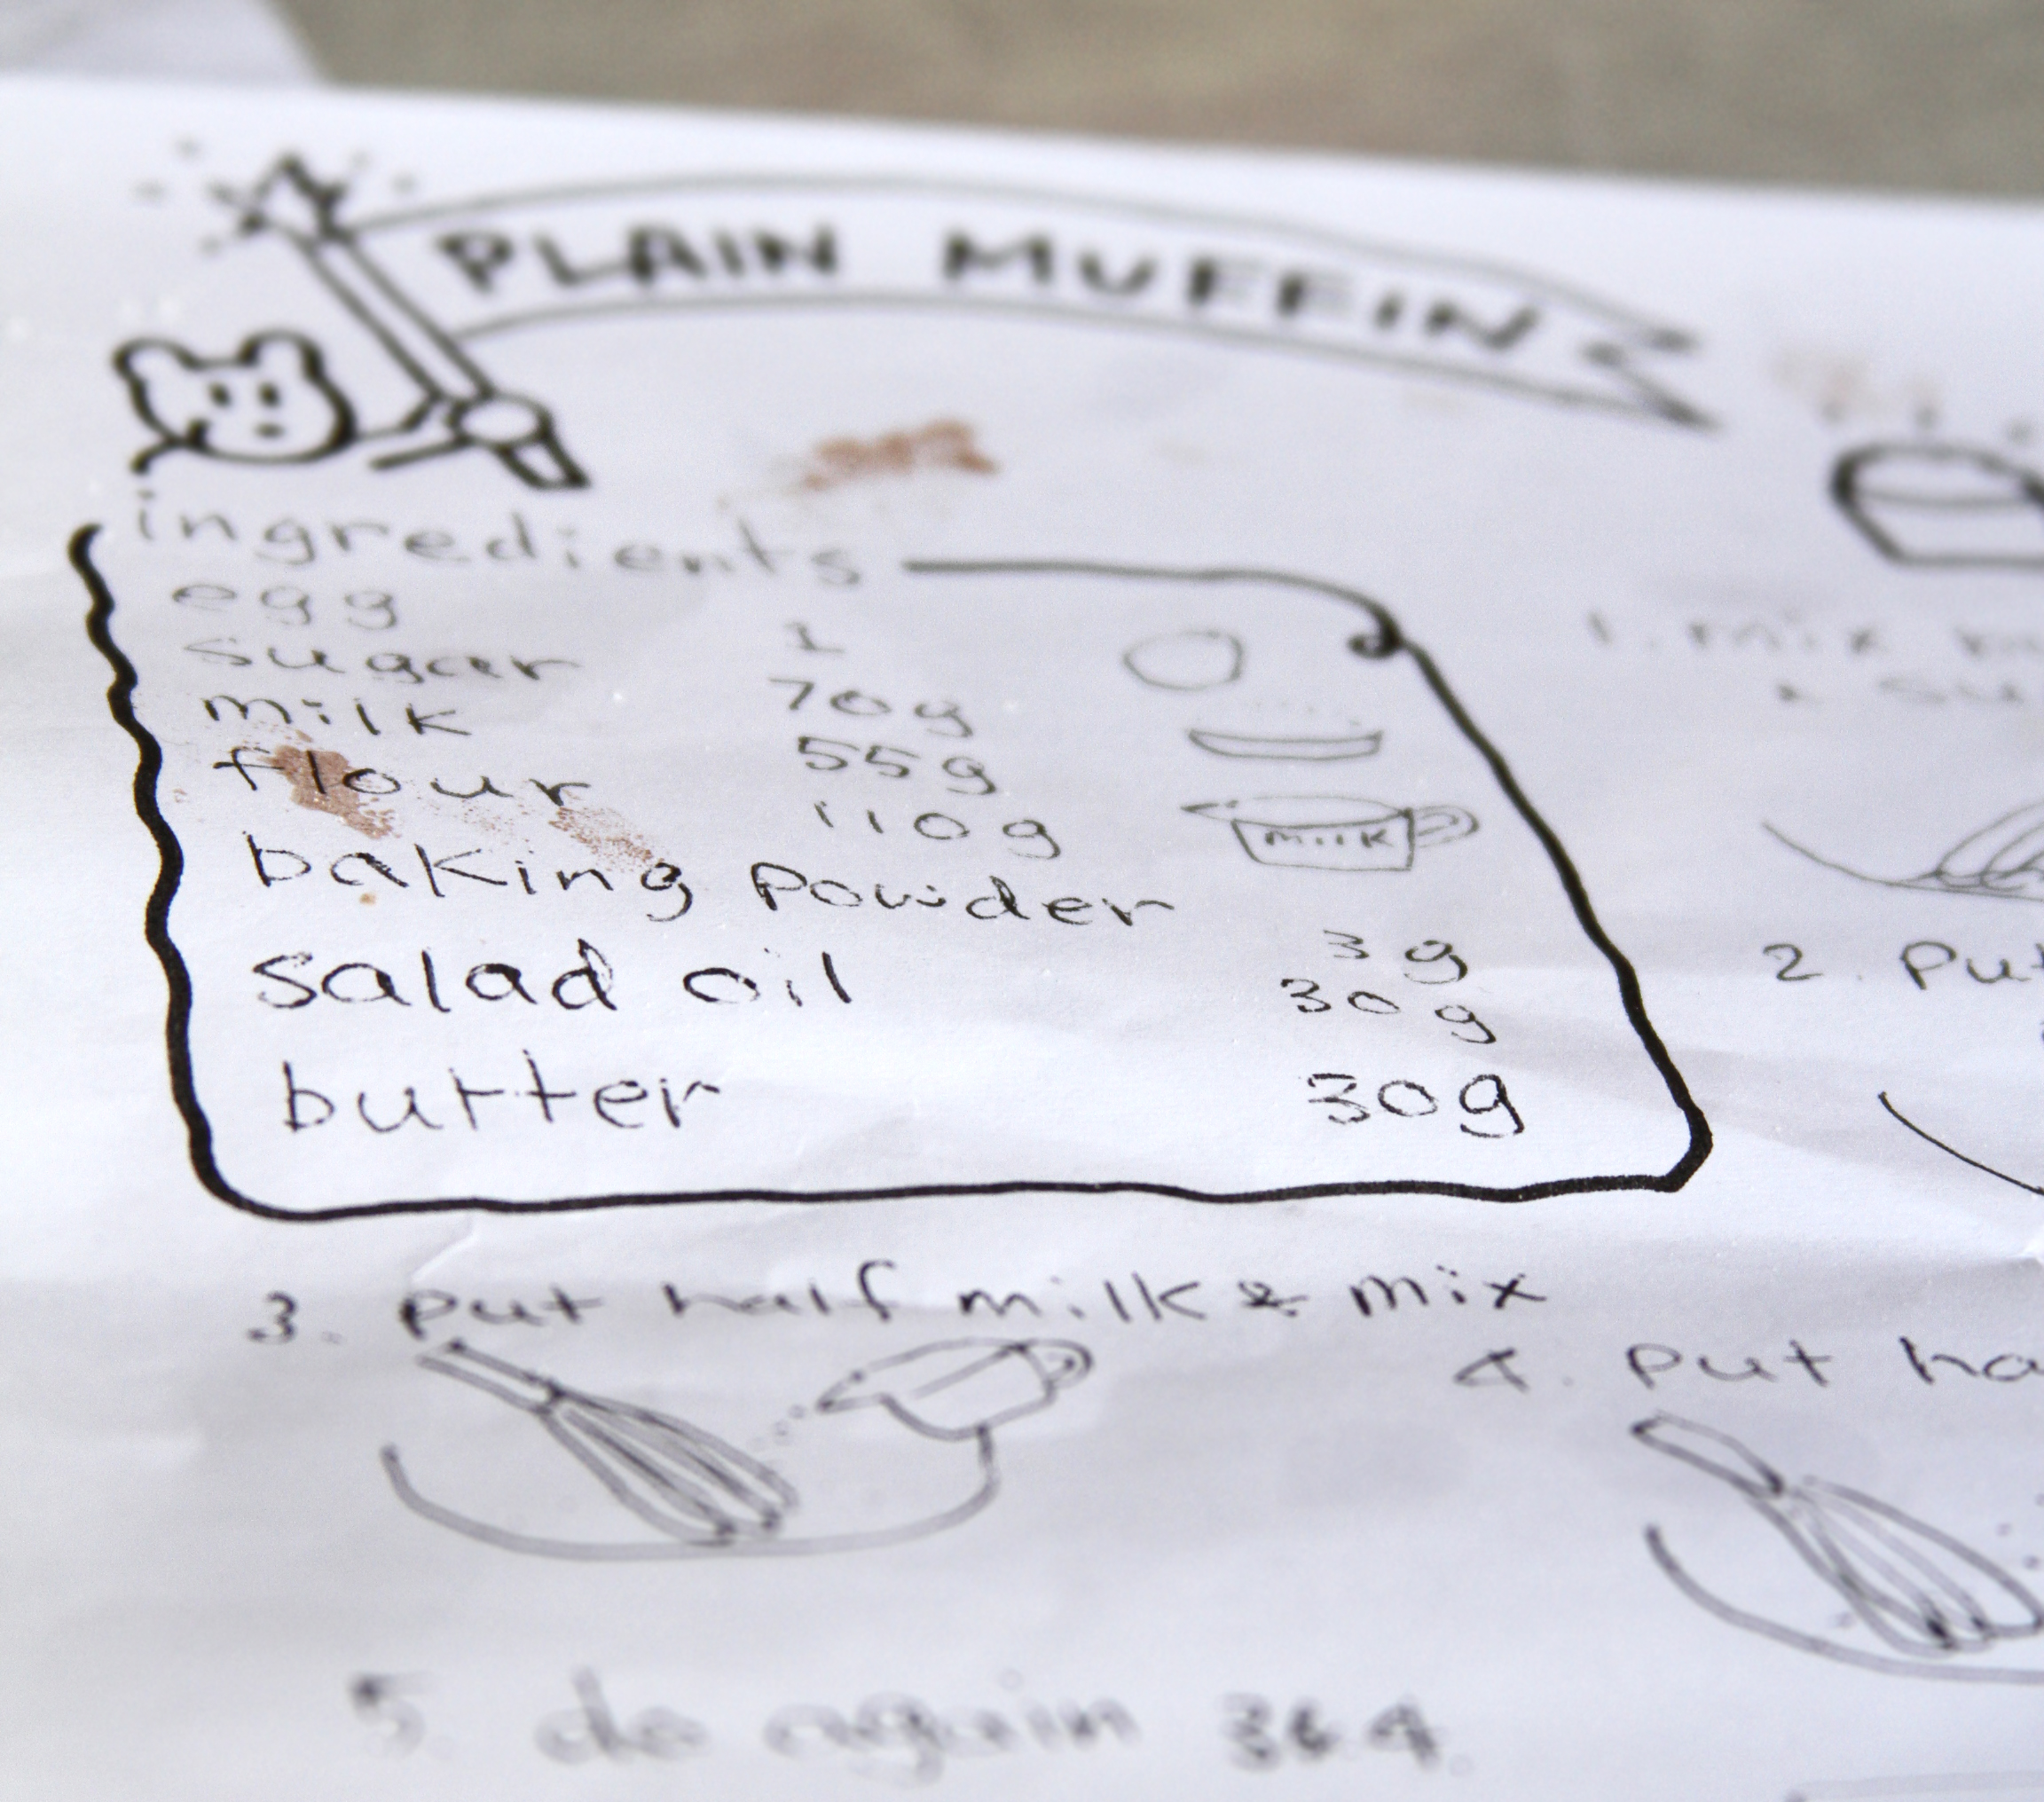 PLAIN MUFFIN
ingredients
egg 1
sugar 70g
milk 55g
flour 110g
MilK
baking powder 3g
salad oil 30g
butter 30g
1. mix
2. Put
3. Put half milk & mix
4. Put
5. do again 3&4.